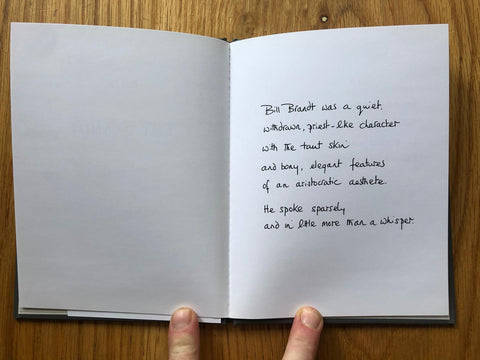 Bill Brandt was a quiet,
withdrawn, priest-like character
with the taut skin
and bony, elegant features
of an aristocratic aesthete.
He spoke sparsely
and in little more than a whisper.